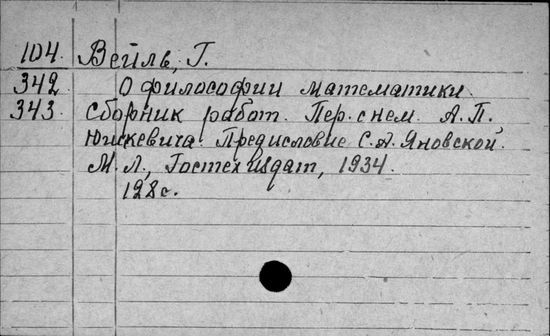 104. Вейль, Г.
342 О философии математики.
343. Сборник работ. Пер. с нем. А. П.
Юшкевича. Предисловие С. А. Яновской.
М. Л., Гостехиздат, 1934.
128 с.